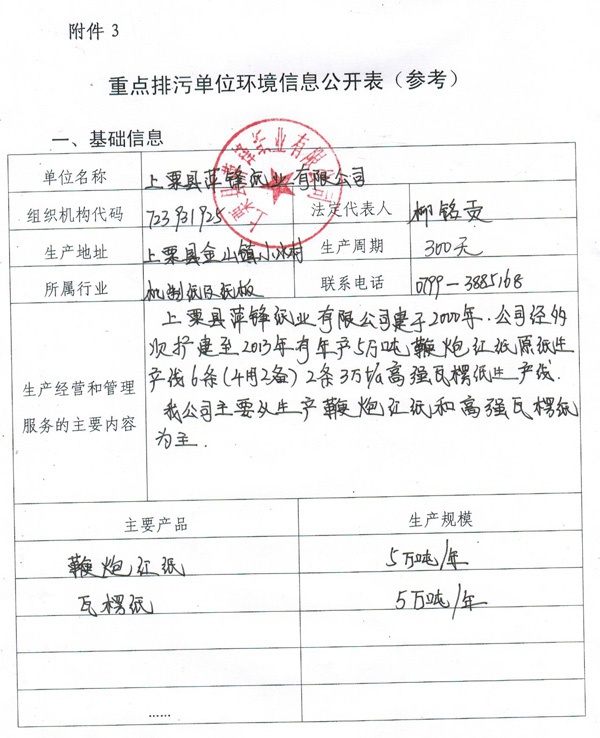 附件 3
重点排污单位环境信息公开表（参考）
一、基础信息
单位名称 上栗县萍锋纸业有限公司
组织机构代码 723931925 法定代表人 柳铭贡
生产地址 上栗县金山镇小水村 生产周期 300天
所属行业 机制纸及纸板 联系电话 0799-3885168
上栗县萍锋纸业有限公司建于2000年.公司经外
次扩建至2013年有年产5万吨鞭炮红纸原纸生
生产经营和管理 产线6条(4用2备) 2条3万t/a高强瓦楞纸生产线.
服务的主要内容 我公司主要从生产鞭炮红纸和高强瓦楞纸
为主.
主要产品 生产规模
鞭炮红纸 5万吨/年
瓦楞纸 5万吨/年
……